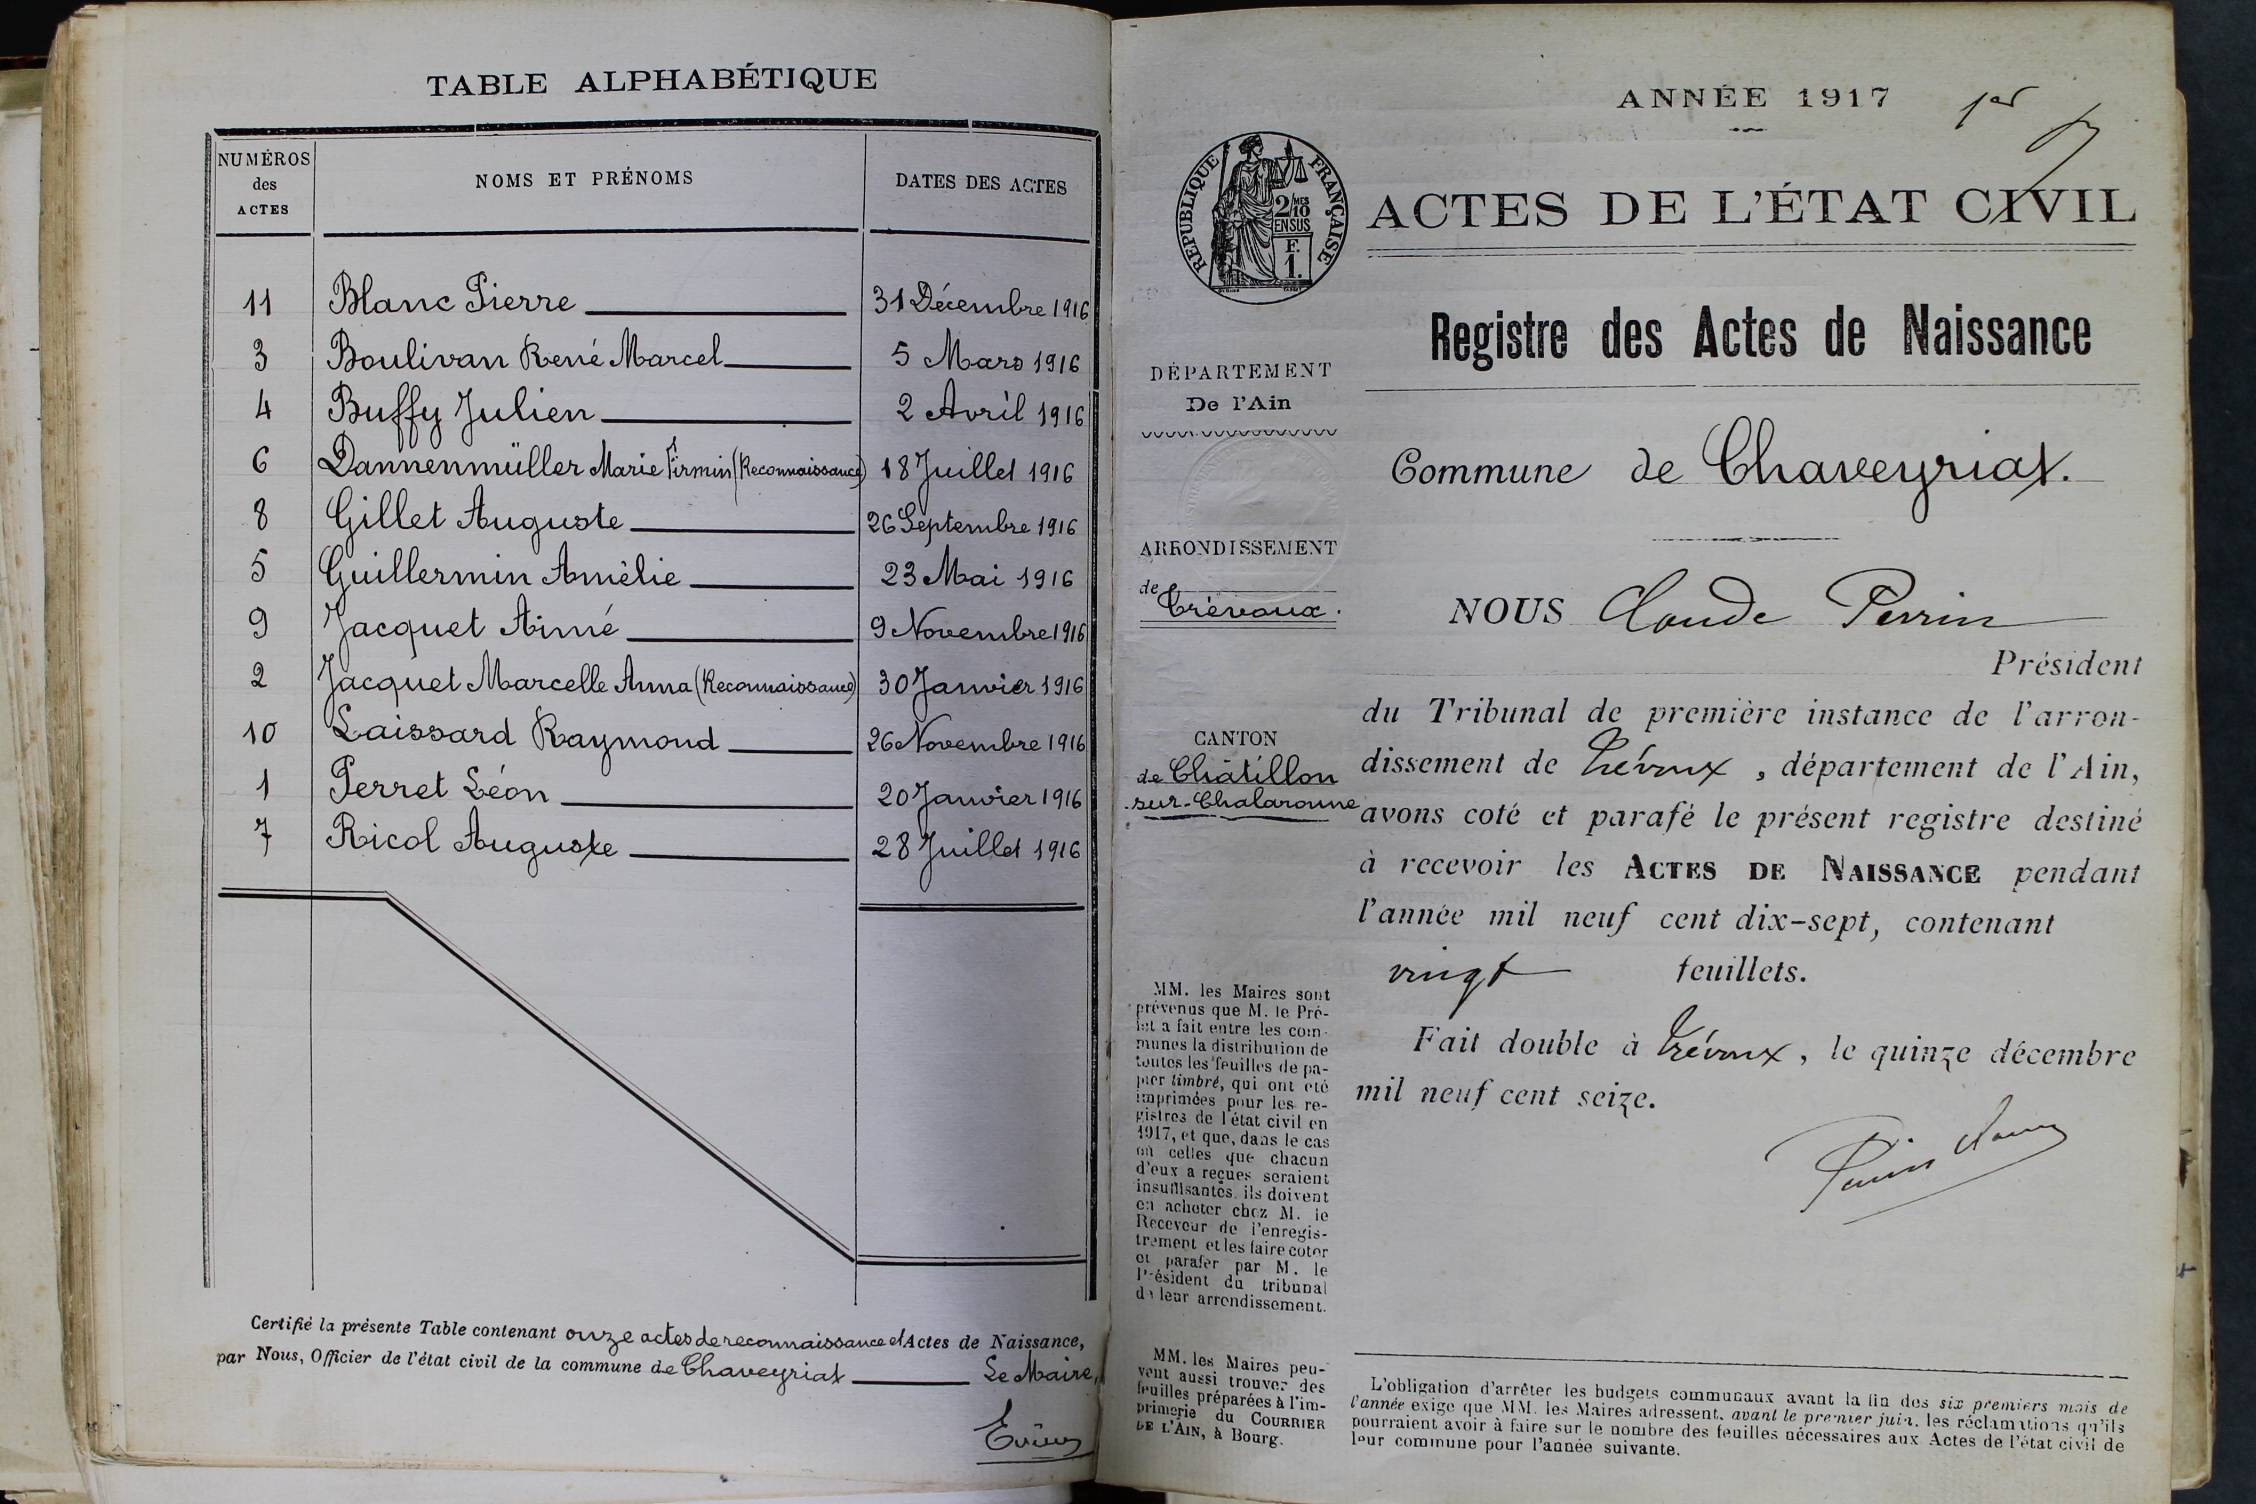 TABLE ALPHABÉTIQUE
NUMÉROS
des
ACTES
NOMS ET PRÉNOMS
DATES DES ACTES
11 Blanc Pierre 31 Décembre 1916
3 Boulivan René Marcel 5 Mars 1916
4 Buffy Julien 2 Avril 1916
6 Dannenmüller Marie Firmin (Reconnaissance) 18 Juillet 1916
8 Gillet Auguste 26 Septembre 1916
5 Guillermin Amélie 23 Mai 1916
9 Jacquet Aimé 9 Novembre 1916
2 Jacquet Marcelle Anna (Reconnaissance) 30 Janvier 1916
10 Laissard Raymond 26 Novembre 1916
1 Perret Léon 20 Janvier 1916
7 Ricol Auguste 28 Juillet 1916
Certifié la présente Table contenant onze actes de reconnaissance et Actes de Naissance,
par Nous, Officier de l'état civil de la commune de Chaveyriat Le Maire,
ANNÉE 1917 1er
RÉPUBLIQUE FRANÇAISE
2/10 MES
EN SUS
F.
1.
ACTES DE L'ÉTAT CIVIL
Registre des Actes de Naissance
DÉPARTEMENT
De l'Ain
ARRONDISSEMENT
de Trévoux.
CANTON
de Châtillon
sur-Chalaronne
MM. les Maires sont
prévenus que M. le Pré-
fet a fait entre les com-
munes la distribution de
toutes les feuilles de pa-
pier timbré, qui ont été
imprimées pour les re-
gistres de l'état civil en
1917, et que, dans le cas
où celles que chacun
d'eux a reçues seraient
insuffisantes, ils doivent
en acheter chez M. le
Receveur de l'enregis-
trement et les faire coter
et parafer par M. le
Président du tribunal
de leur arrondissement.
MM. les Maires peu-
vent aussi trouver des
feuilles préparées à l'im-
primerie du COURRIER
DE L'AIN, à Bourg.
Commune de Chaveyriat.
NOUS Claude Perrin
Président
du Tribunal de première instance de l'arron-
dissement de Trévoux, département de l'Ain,
avons coté et parafé le présent registre destiné
à recevoir les ACTES DE NAISSANCE pendant
l'année mil neuf cent dix-sept, contenant
vingt feuillets.
Fait double à Trévoux, le quinze décembre
mil neuf cent seize.
L'obligation d'arrêter les budgets communaux avant la fin des six premiers mois de
l'année exige que MM. les Maires adressent, avant le premier juin, les réclamations qu'ils
pourraient avoir à faire sur le nombre des feuilles nécessaires aux Actes de l'état civil de
leur commune pour l'année suivante.